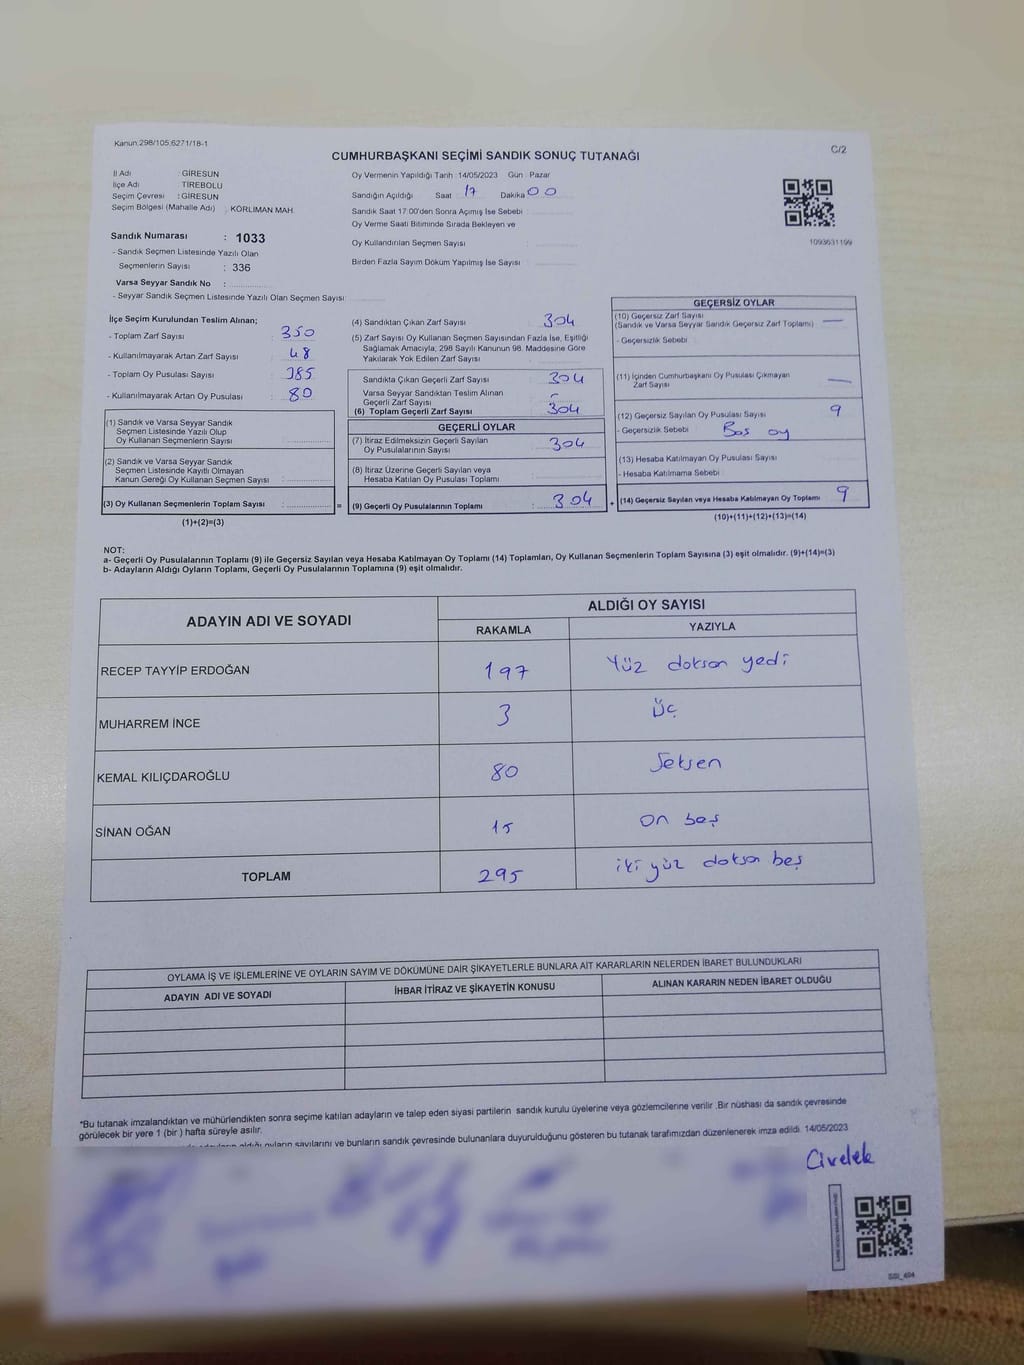 Kanun.298/105;6271/18-1
C/2
CUMHURBAŞKANI SEÇİMİ SANDIK SONUÇ TUTANAĞI
İl Adı : GİRESUN
İlçe Adı TİREBOLU
Seçim Çevresi : GİRESUN
Seçim Bölgesi (Mahalle Adı) : KÖRLİMAN MAH.
Oy Vermenin Yapıldığı Tarih :14/05/2023 Gün : Pazar
Sandığın Açıldığı Saat 17 Dakika 00
Sandık Saat 17.00'den Sonra Açımış İse Sebebi :
Oy Verme Saati Bitiminde Sırada Bekleyen ve
Oy Kullandırılan Seçmen Sayısı :
Birden Fazla Sayım Döküm Yapılmış İse Sayısı :
1093631199
Sandık Numarası : 1033
- Sandık Seçmen Listesinde Yazılı Olan
Seçmenlerin Sayısı : 336
Varsa Seyyar Sandık No :
- Seyyar Sandık Seçmen Listesinde Yazılı Olan Seçmen Sayısı:
İlçe Seçim Kurulundan Teslim Alınan;
- Toplam Zarf Sayısı : 350
- Kullanılmayarak Artan Zarf Sayısı : 48
- Toplam Oy Pusulası Sayısı : 385
- Kullanılmayarak Artan Oy Pusulası : 80
(1) Sandık ve Varsa Seyyar Sandık
Seçmen Listesinde Yazılı Olup
Oy Kullanan Seçmenlerin Sayısı :
(2) Sandık ve Varsa Seyyar Sandık
Seçmen Listesinde Kayıtlı Olmayan
Kanun Gereği Oy Kullanan Seçmen Sayısı :
(3) Oy Kullanan Seçmenlerin Toplam Sayısı :
(1)+(2)=(3)
=
(4) Sandıktan Çıkan Zarf Sayısı : 304
(5) Zarf Sayısı Oy Kullanan Seçmen Sayısından Fazla İse, Eşitliği
Sağlamak Amacıyla, 298 Sayılı Kanunun 98. Maddesine Göre
Yakılarak Yok Edilen Zarf Sayısı :
Sandıkta Çıkan Geçerli Zarf Sayısı : 304
Varsa Seyyar Sandıktan Teslim Alınan
Geçerli Zarf Sayısı : -
(6) Toplam Geçerli Zarf Sayısı : 304
GEÇERLİ OYLAR
(7) İtiraz Edilmeksizin Geçerli Sayılan
Oy Pusulalarının Sayısı : 304
(8) İtiraz Üzerine Geçerli Sayılan veya
Hesaba Katılan Oy Pusulası Toplamı :
(9) Geçerli Oy Pusulalarının Toplamı : 304
+
GEÇERSİZ OYLAR
(10) Geçersiz Zarf Sayısı
(Sandık ve Varsa Seyyar Sandık Geçersiz Zarf Toplamı) : —
- Geçersizlik Sebebi
(11) İçinden Cumhurbaşkanı Oy Pusulası Çıkmayan
Zarf Sayısı : —
(12) Geçersiz Sayılan Oy Pusulası Sayısı : 9
- Geçersizlik Sebebi : Boş oy
(13) Hesaba Katılmayan Oy Pusulası Sayısı
- Hesaba Katılmama Sebebi :
(14) Geçersiz Sayılan veya Hesaba Katılmayan Oy Toplamı : 9
(10)+(11)+(12)+(13)=(14)
NOT:
a- Geçerli Oy Pusulalarının Toplamı (9) ile Geçersiz Sayılan veya Hesaba Katılmayan Oy Toplamı (14) Toplamları, Oy Kullanan Seçmenlerin Toplam Sayısına (3) eşit olmalıdır. (9)+(14)=(3)
b- Adayların Aldığı Oyların Toplamı, Geçerli Oy Pusulalarının Toplamına (9) eşit olmalıdır.
ADAYIN ADI VE SOYADI
ALDIĞI OY SAYISI
RAKAMLA YAZIYLA
RECEP TAYYİP ERDOĞAN 197 Yüz doksan yedi
MUHARREM İNCE 3 Üç
KEMAL KILIÇDAROĞLU 80 Seksen
SİNAN OĞAN 15 On beş
TOPLAM 295 iki yüz doksan beş
OYLAMA İŞ VE İŞLEMLERİNE VE OYLARIN SAYIM VE DÖKÜMÜNE DAİR ŞİKAYETLERLE BUNLARA AİT KARARLARIN NELERDEN İBARET BULUNDUKLARI
ADAYIN ADI VE SOYADI İHBAR İTİRAZ VE ŞİKAYETİN KONUSU ALINAN KARARIN NEDEN İBARET OLDUĞU
*Bu tutanak imzalandıktan ve mühürlendikten sonra seçime katılan adayların ve talep eden siyasi partilerin sandık kurulu üyelerine veya gözlemcilerine verilir .Bir nüshası da sandık çevresinde
görülecek bir yere 1 (bir ) hafta süreyle asılır.
aldığı oyların sayılarını ve bunların sandık çevresinde bulunanlara duyurulduğunu gösteren bu tutanak tarafımızdan düzenlenerek imza edildi. 14/05/2023
Civelek